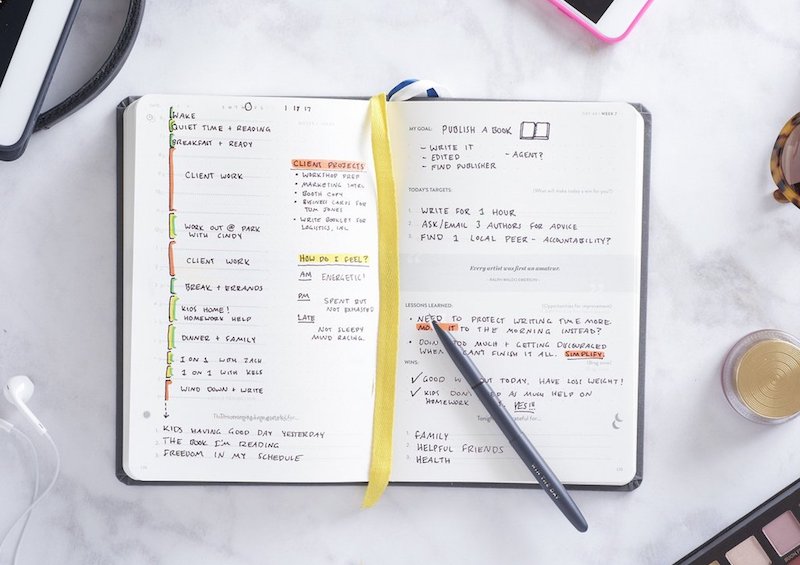 1 17 17
WAKE
QUIET TIME + READING
BREAKFAST + READY
CLIENT WORK
WORK OUT @ PARK
WITH CINDY
CLIENT WORK
BREAK + ERRANDS
KIDS HOME!
HOMEWORK HELP
DINNER + FAMILY
1 ON 1 WITH ZACH
1 ON 1 WITH KELS
WIND DOWN + WRITE
CLIENT PROJECTS
• WORKSHOP PREP
• MARKETING MTRL
• BOOTH COPY
• BUSINESS CARDS FOR
TOM JONES
• WRITE BOOKLET FOR
LOGISTICS, INC.
HOW DO I FEEL?
AM ENERGETIC!
PM SPENT BUT
NOT EXHAUSTED
LATE
NOT SLEEPY
MIND RACING.
1. KIDS HAVING GOOD DAY YESTERDAY
2. THE BOOK I'M READING
3. FREEDOM IN MY SCHEDULE
WEEK 7
MY GOAL: PUBLISH A BOOK
- WRITE IT
- EDITED - AGENT?
- FIND PUBLISHER
TODAY'S TARGETS: (What will make today a win for you?)
1. WRITE FOR 1 HOUR
2. ASK/EMAIL 3 AUTHORS FOR ADVICE
3. FIND 1 LOCAL PEER - ACCOUNTABILITY?
Every artist was first an amateur.
- RALPH WALDO EMERSON -
LESSONS LEARNED: (Opportunities for improvement)
• NEED TO PROTECT WRITING TIME MORE.
IT TO THE MORNING INSTEAD?
• TOO MUCH + GETTING DISCOURAGED
WHEN CAN'T FINISH IT ALL. SIMPLIFY.
WINS:
✓ GOOD OUT TODAY, HAVE LOST WEIGHT!
✓ KIDS AS MUCH HELP ON
HOMEWORK YES!!
for...
1. FAMILY
2. HELPFUL FRIENDS
3. HEALTH
WIN THE DAY